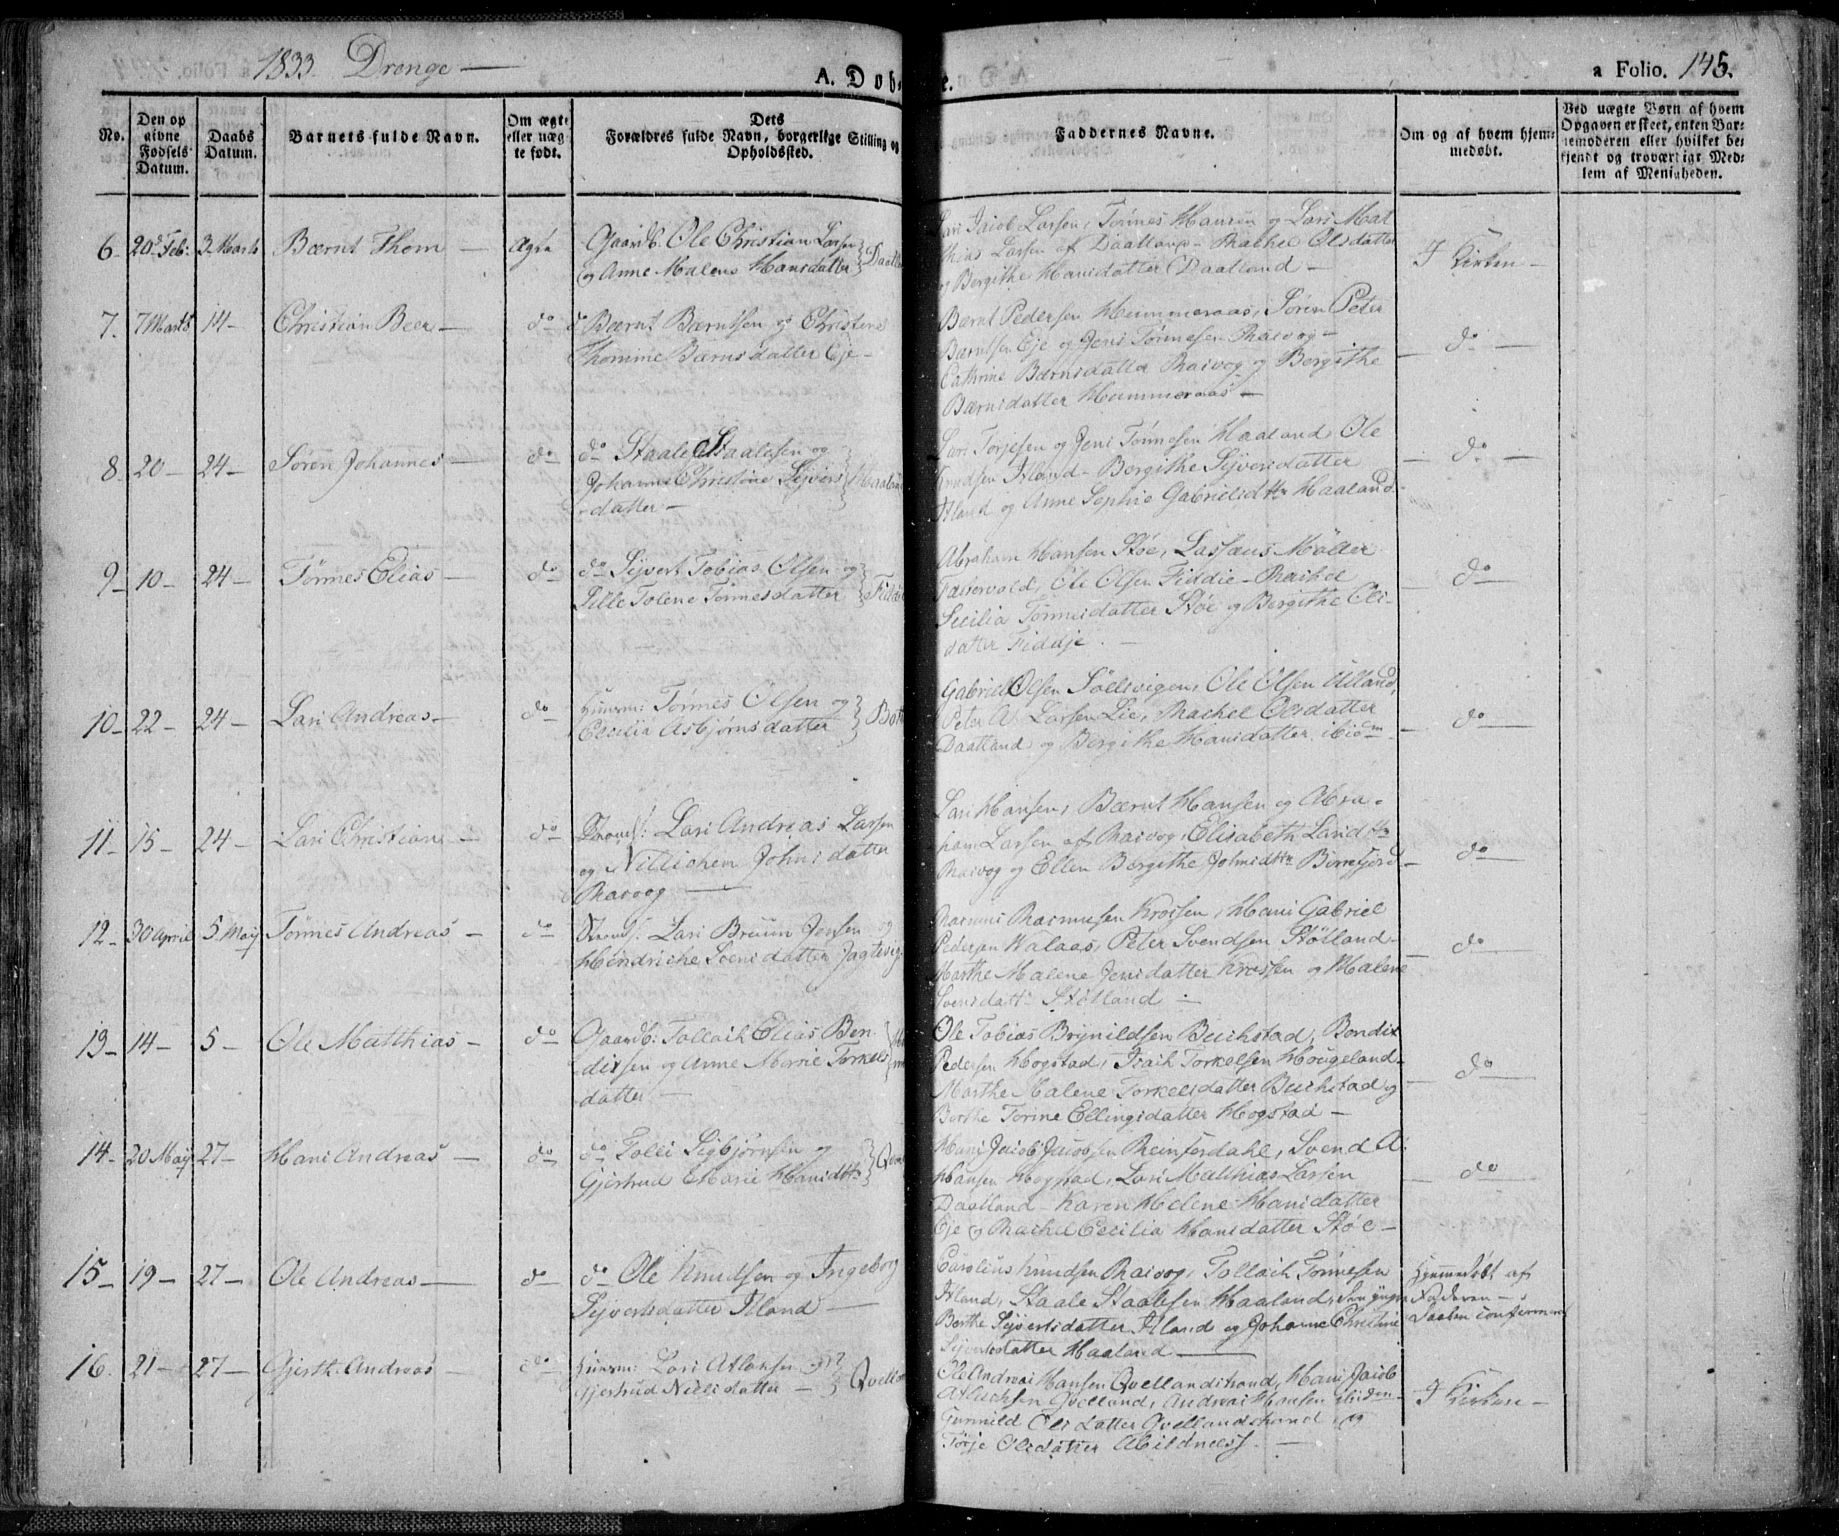 1833. Drenge —
A. Dob
e.
a Folio. 145.
No.
Den op
givne
Fødsels
Datum.
Daabs
Datum.
Barnets fulde Navn.
Om ægte
eller uæg
te født.
Dets
Forældres fulde Navn, borgerlige Stilling og
Opholdssted.
Faddernes Navne.
Om og af hvem hjem=
medøbt.
Ved uægte Børn af hvem
Opgaven er skeet, enten Bar=
nemoderen eller hvilket be=
kjendt og troværdigt Med=
lem af Menigheden.
6 20 Feb: 3 Marts Bærnt Thom — Ægte
Gaardb. Ole Christian Larsen
og Anne Malene Hansdatter
Lars Jacob Larsen, Tönnes Hansen og Lars Mat
thias Larsen af Daatland — Rachel Olsdatter
og Bergithe Hansdatter Daatland —
I Kirken —
7. 7 Marts 14 — Christian Beer — do
Bærnt Bærntsen og Christine
Thomine Bærnsdatter Eje —
Bærnt Pedersen Hummeraas, Sören Peter
Bærntsen Eje og Jens Tönnesen Rasvog —
Cathrine Bærnsdatter Rasvog og Bergithe
Bærnsdatter Hummeraas —
do —
8. 20 — 24 — Sören Johannes — do
do Staale Staalesen og
Johanne Christine Sejvers
datter —
Lars Torjesen og Jens Tönnesen Haaland, Ole
Knudsen Itland — Bergithe Sejversdatter
Itland og Anne Sophie Gabrielsdttr Haaland
do —
9 — 10 — 24 — Tönnes Elias — do
do Sejvert Tobias Olsen og
Sille Tolene Tönnesdatter
Abraham Hansen Stöe, Lassæus Möller
Ole Olsen Fiddie — Rachel
Secilia Tönnesdatter Stöe og Bergithe Ols
datter Fiddje. —
do
10 — 22 — 24 — Lars Andreas — do
Huusm: Tönnes Olsen og
Cecilia Asbjörnsdatter
Gabriel Olsen Söelsvigen, Ole Olsen
Peter A. Larsen Lie, Rachel Olsdatter
Daatland og Bergithe Hansdatter ibidm
do
11 — 15 — 24 — Lars Christian — do
Lars Andreas Larsen
og Nillichen Johnsdatter
Rasvog —
Lars Hansen, Bærnt Hansen og Abra-
ham Larsen af Rasvog, Elisabeth Larsdttr
Rasvog og Ellen Bergithe Johnsdttr
do
12 — 30 April 5 May Tönnes Andreas — do
Lars Bruun Jensen og
Hendriche Svensdatter Jagtevig
Rasmus Rasmusen Krossen, Hans Gabriel
Pedersen Peter Svendsen Stötland —
Marthe Malene Jensdatter Krossen og Malene
Svensdatt: Stötland —
do
13 — 14 — 5 — Ole Matthias — do
Gaardb: Tollach Elias Ben-
dixsen og Anne Marie Torkels
datter —
Ole Tobias Brynildsen Buchstad, Bendix
Pedersen Hogstad, Isach Torkelsen Hougeland —
Marthe Malene Torkelsdatter Buchstad og
Berthe Torine Ellingsdatter Hogstad —
do
14 — 20 May 27 — Hans Andreas — do
do Tolle Sigbjörnsen og
Gjertrud Marie Hansdttr
Hans Jacob Jacobsen Reinfersdahl, Svend A:
Hansen Hogstad, Lars Matthias Larsen
Daatland — Karen Helene Hansdatter
Eje og Rachel Cecilia Hansdatter Stöe —
do
15 — 19 — 27 — Ole Andreas — do
do Ole Knudsen og Ingeborg
Sejvertsdatter Itland —
Carolius Knudsen Rasvog, Tollach Tönnesen
Itland, Staale Staalesen Haaland,
Berthe Sejvertsdatter Itland og Johanne Christine
Sejvertsdatter Haaland —
Hjemmedöbt af
Faderen —
Daaben
16. 21 — 27 — Gjerth Andreas — do
Huusm: Lars Atlaksen og
Gjertrud Nielsdatter —
Ole Andreas Hansen Qvellandstrand, Hans Jacob
Atlachsen Qvelland, Andreas Hansen ibiden —
Gunnild Olsdatter Qvellandstrand, og
Torje Olsdatter Abildness. —
I Kirken —